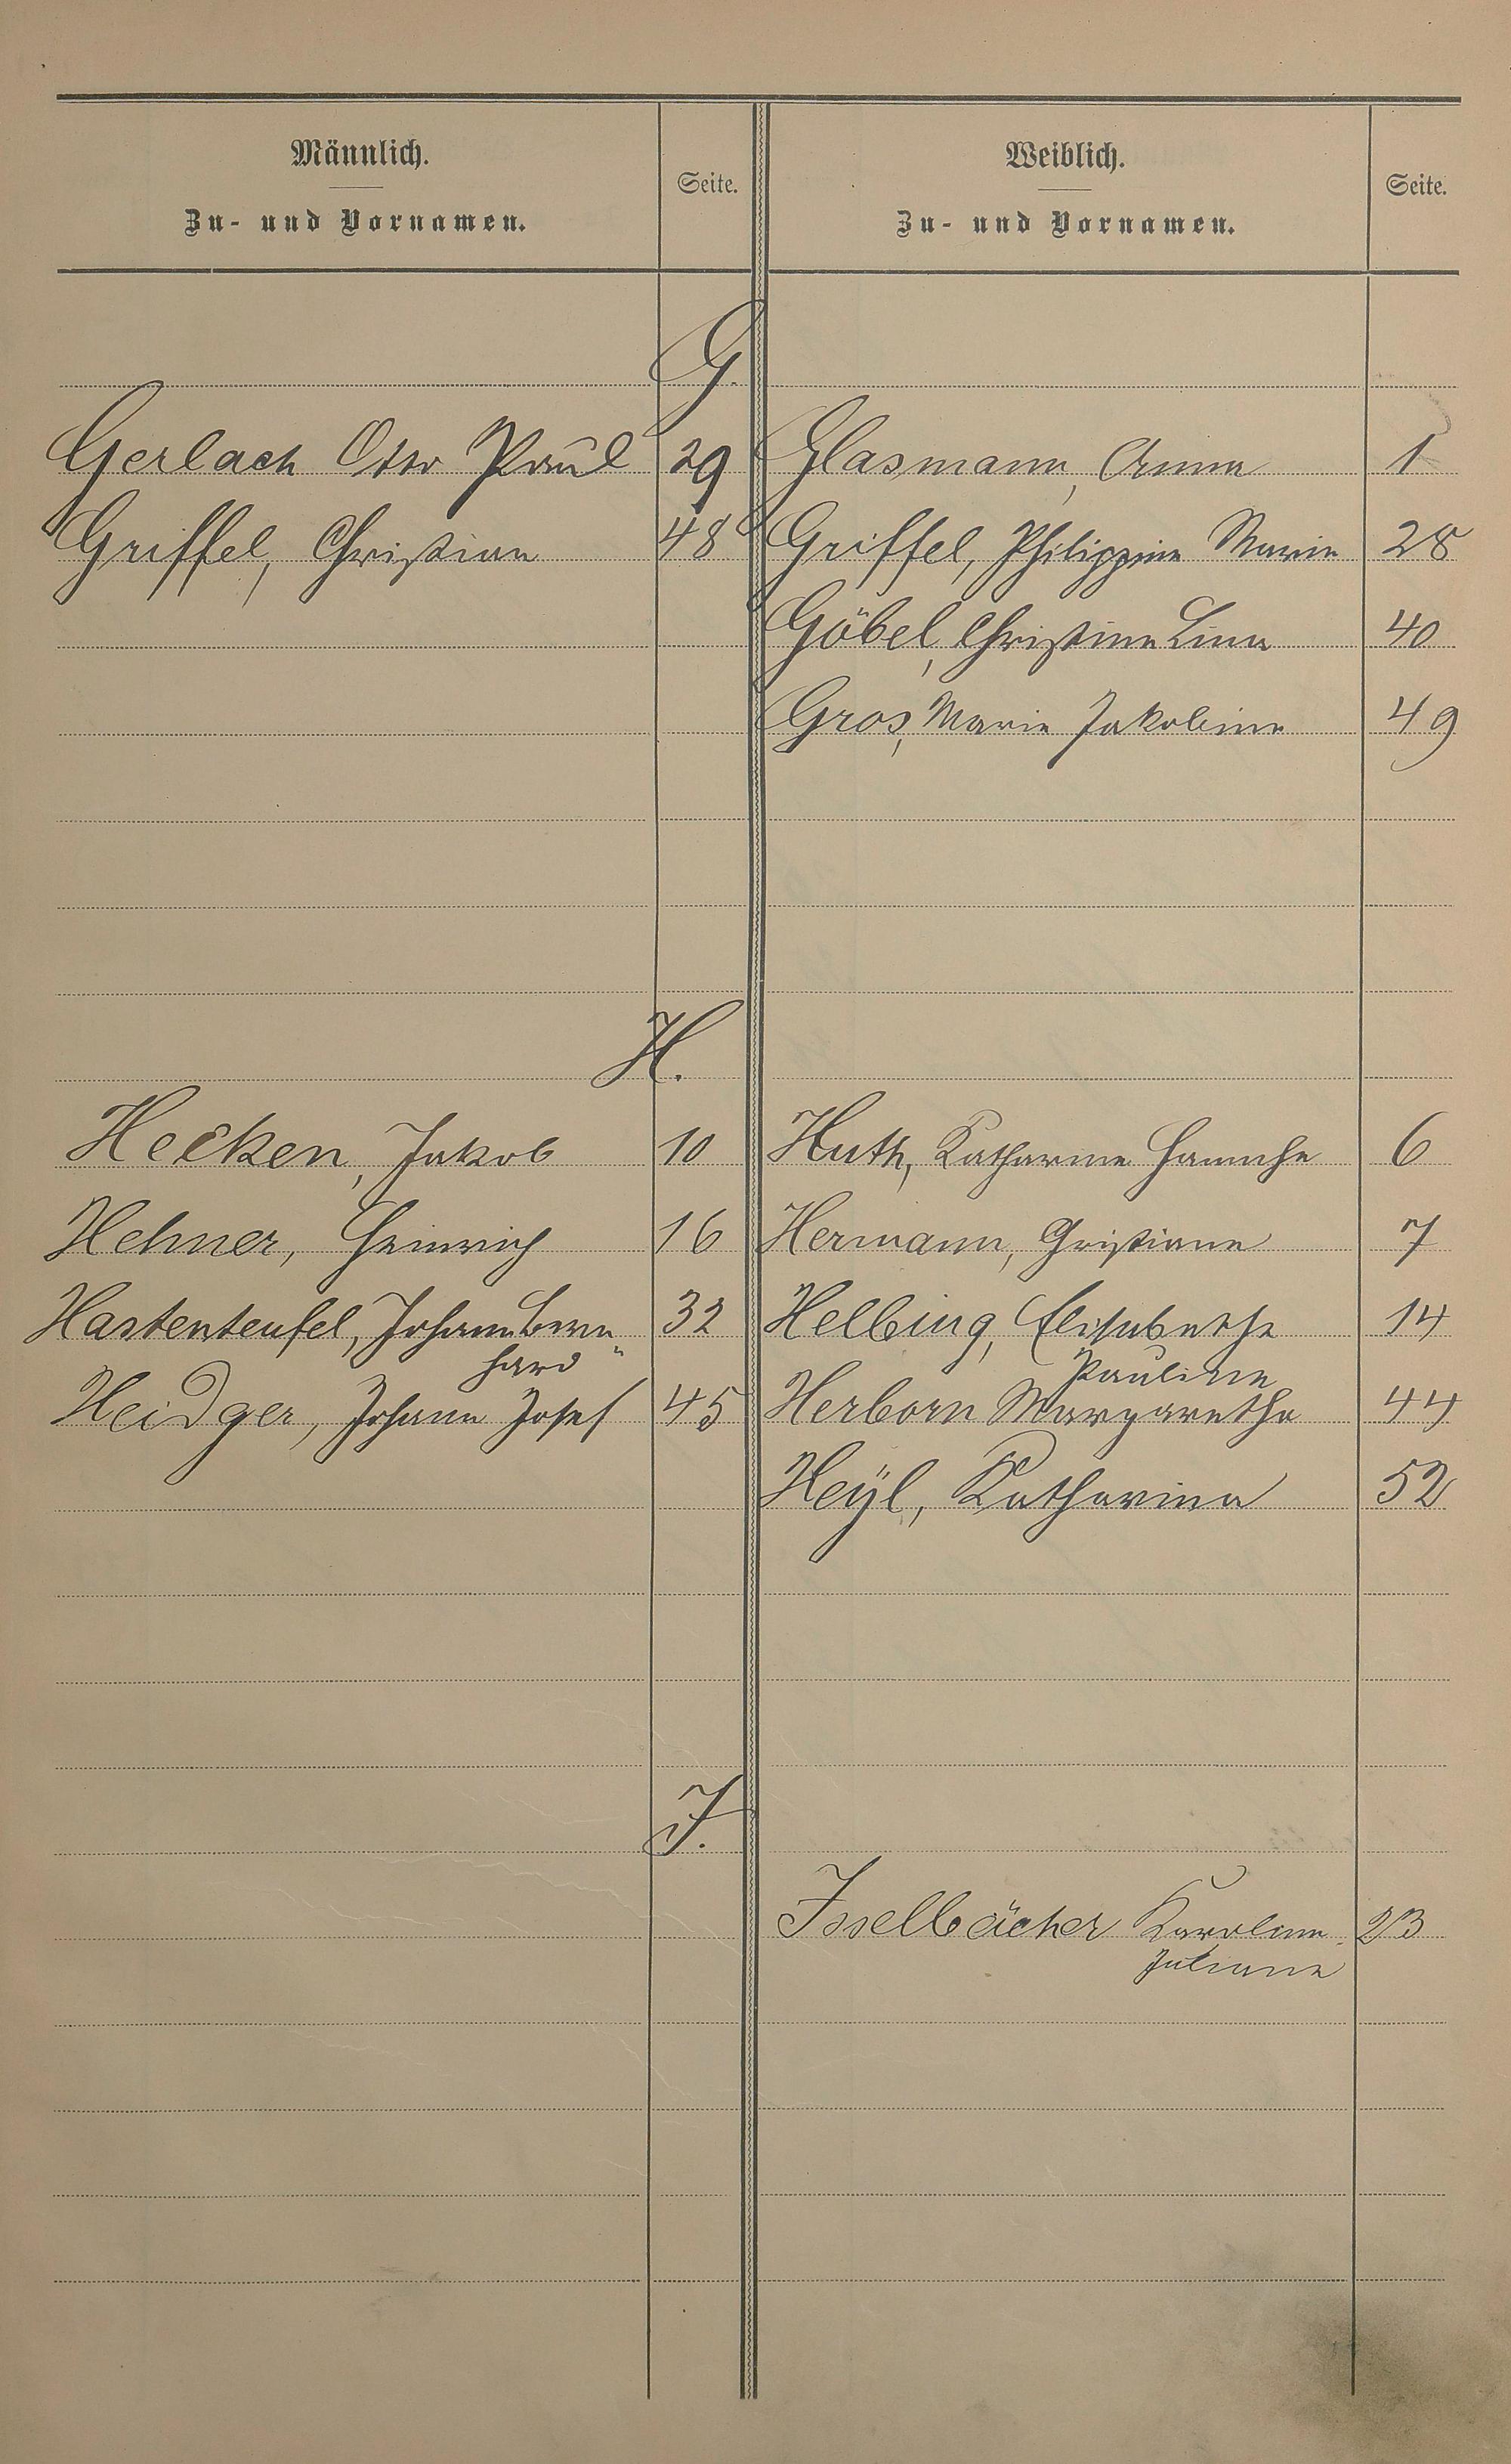 Männlich.
Zu- und Vornamen.
Seite.
Weiblich.
Zu- und Vornamen.
Seite.
G.
Gerlach Otto Paul 29 Glasmann, Anna 1
Griffel, Christian 48 Griffel, Philippine Marie 28
Göbel, Christine Lina 40
Gros, Marie Jakobine 49
H.
Hecken, Jakob 10 Huth, Katharine 6
Hehner, Heinrich 16 Hermann, Christiane 7
Hastenteufel, Johann Bern- 32 Helbing, Elisabethe 14
hard Pauline
Heidger, Johann Josef 45 Herborn Margarethe 44
Heÿl, Katharina 52
J.
Isselbächer Karoline 23
Juliane